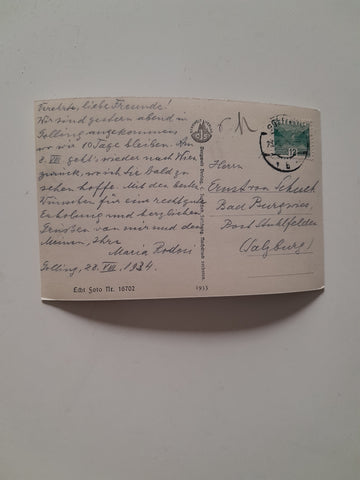 Verehrte, liebe Freunde!
Wir sind gestern abend in
Golling angekommen,
wo wir 10 Tage bleiben. Am
8. VIII. geht's wieder nach Wien
zurück, wo ich Sie bald zu
sehen hoffe. Mit den besten
Wünschen für eine recht gute
Erholung und herzlichen
Grüßen von mir und den
Meinen, Ihre
Maria
Golling, 28. VII. 1934.
Echt Foto Nr. 16702
1933
Herrn
Ernst von
Bad Burgwies,
Post Stuhlfelden
(Salzburg)
12